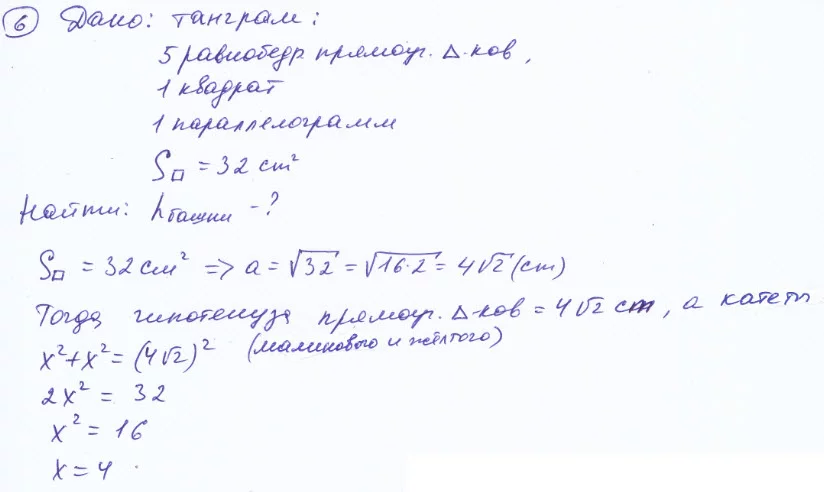 6 Дано: танграм:
5 равнобедр прямоуг. Δ-ков,
1 квадрат
1 параллелограмм
S□ = 32 cm²
Найти: hбашни - ?
S□ = 32 см² => a = √32 = √16·2 = 4√2 (cm)
Тогда гипотенуза прямоуг. Δ-ков = 4√2 cm, а катеты
x² + x² = (4√2)² (малинового и жёлтого)
2x² = 32
x² = 16
x = 4